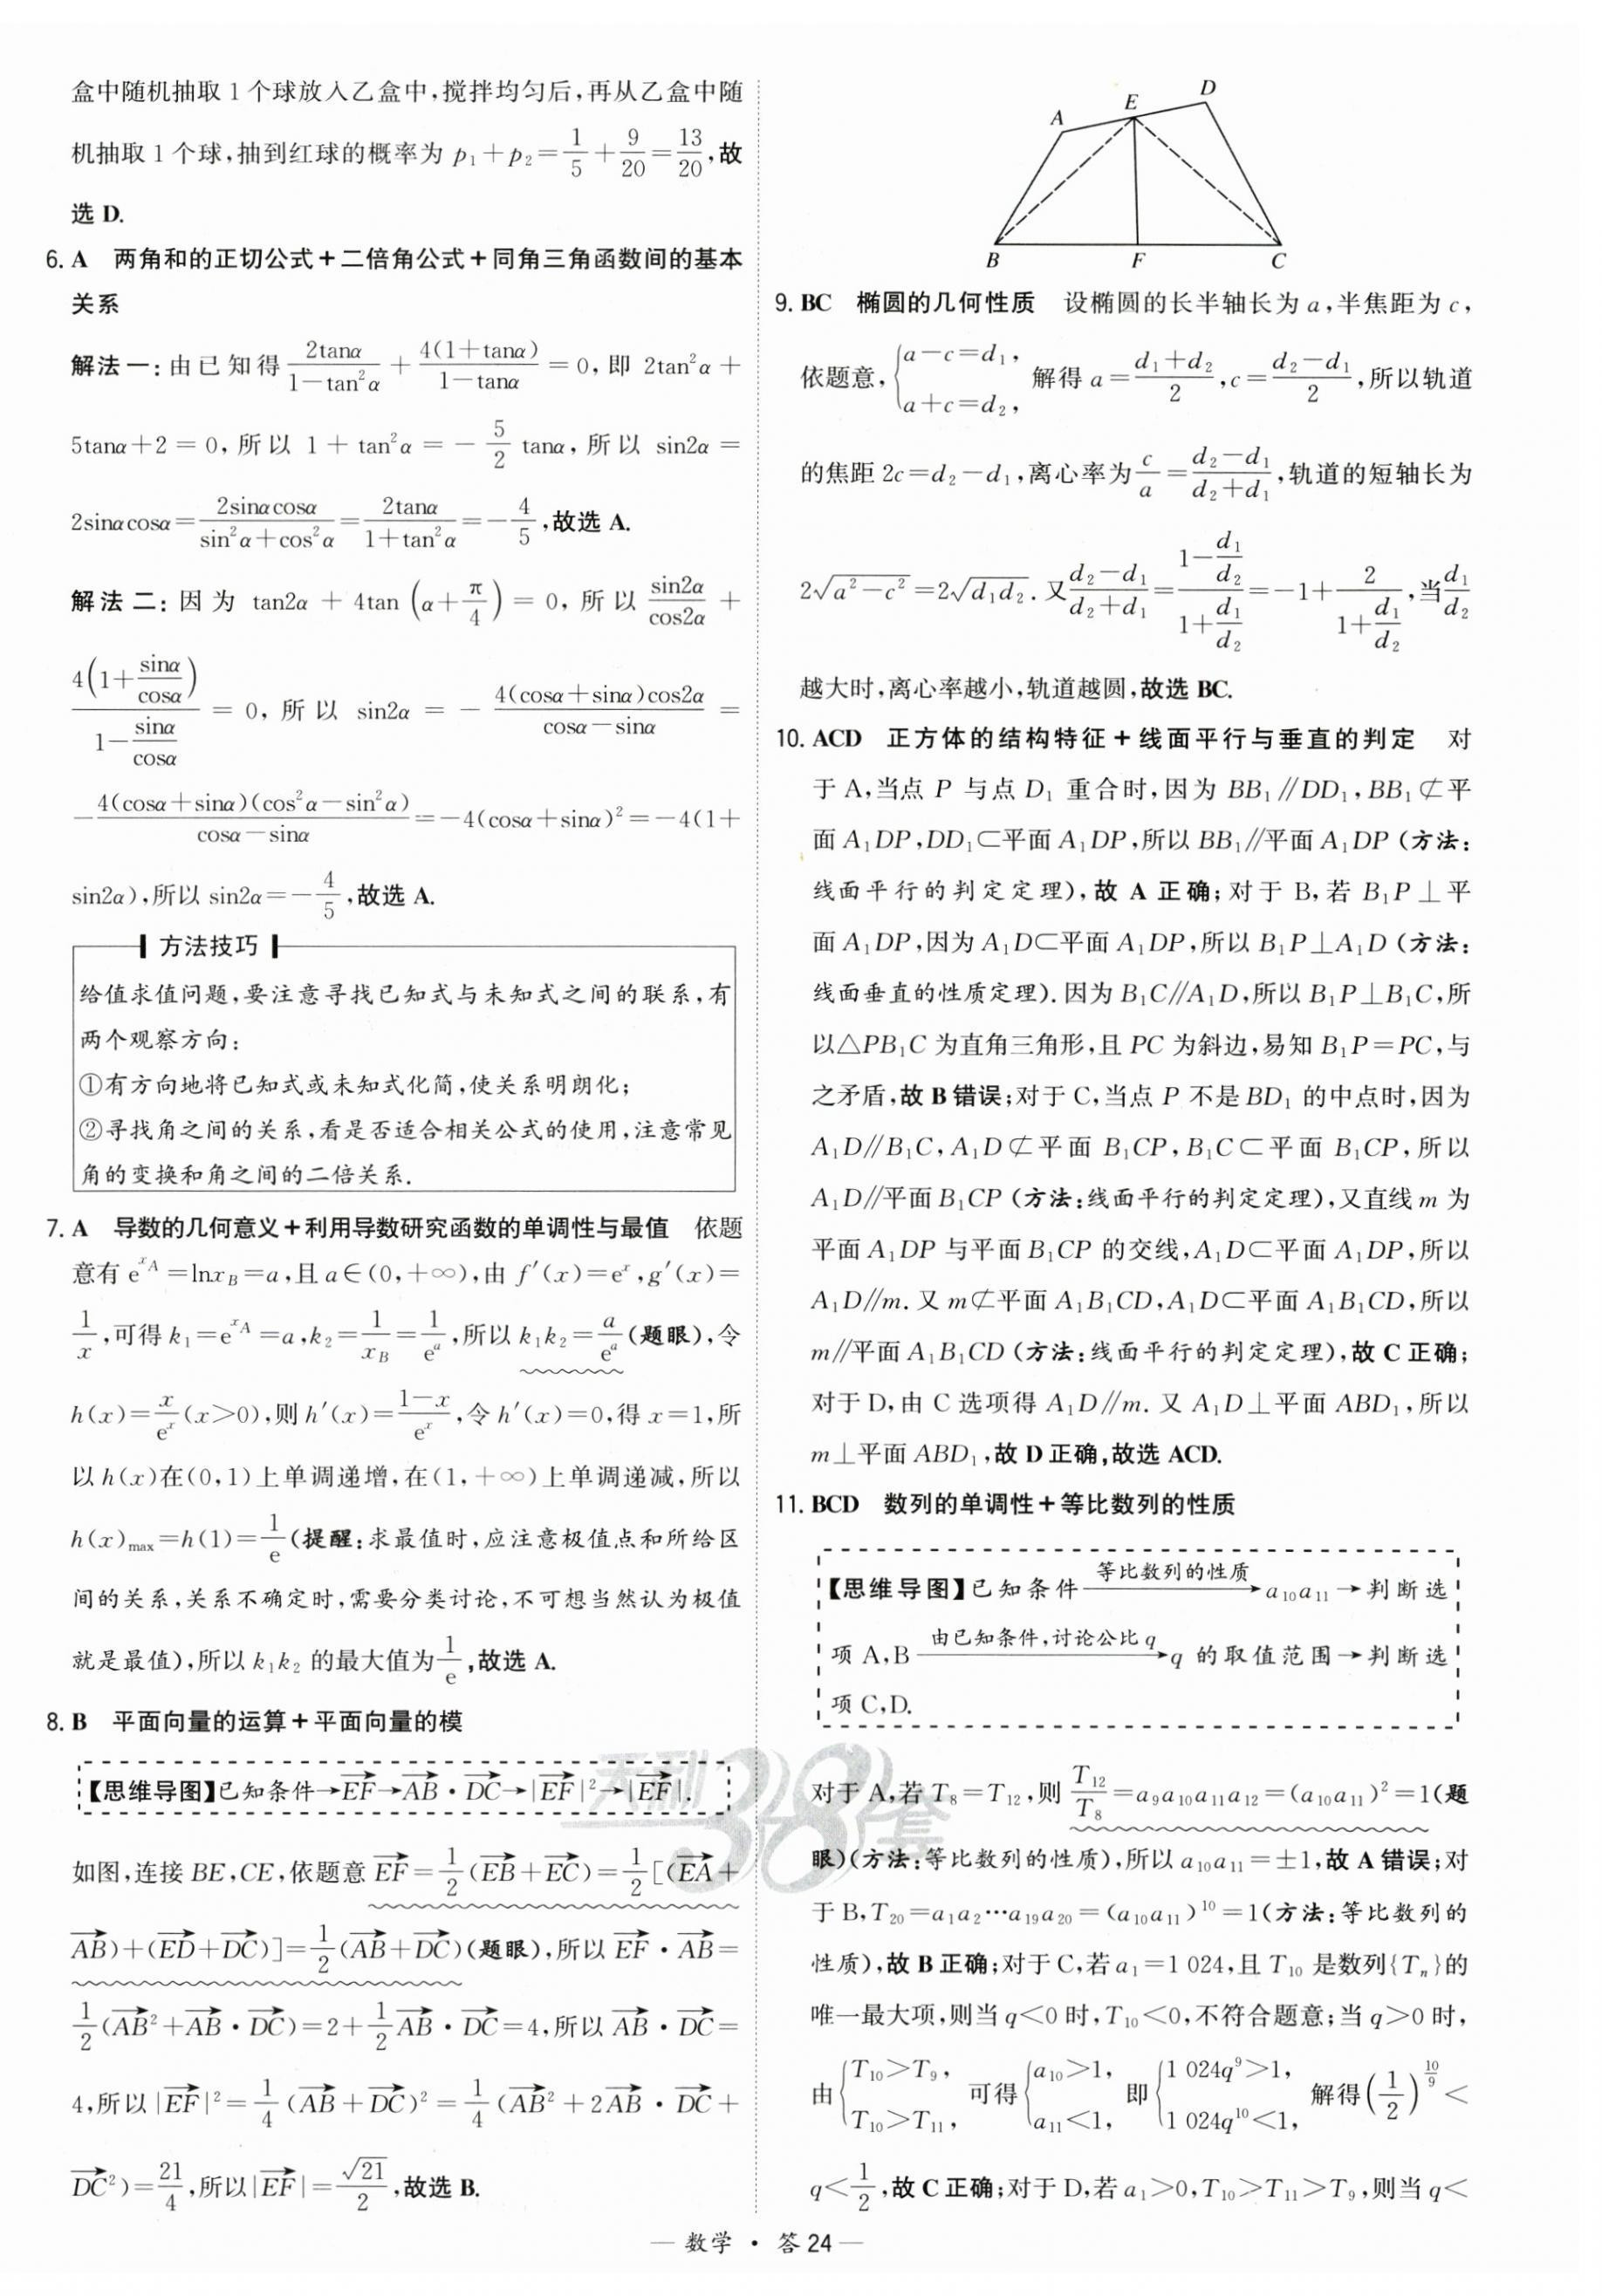 盒中随机抽取 1 个球放入乙盒中,搅拌均匀后,再从乙盒中随
机抽取 1 个球,抽到红球的概率为 p₁+p₂=1/5+9/20=13/20,故
选 D.
6. A 两角和的正切公式+二倍角公式+同角三角函数间的基本
关系
解法一:由已知得 2tanα/(1-tan²α) + 4(1+tanα)/(1-tanα) = 0, 即 2tan²α +
5tanα+2 = 0, 所以 1 + tan²α = -5/2 tanα, 所以 sin2α =
2sinαcosα=2sinαcosα/(sin²α+cos²α)=2tanα/(1+tan²α)=-4/5,故选 A.
解法二:因为 tan2α + 4tan(α+π/4) = 0, 所以 sin2α/cos2α +
4(1+sinα/cosα)/(1-sinα/cosα) = 0, 所以 sin2α = -4(cosα+sinα)cos2α/(cosα-sinα) =
-4(cosα+sinα)(cos²α-sin²α)/(cosα-sinα)=-4(cosα+sinα)²=-4(1+
sin2α),所以 sin2α=-4/5,故选 A.
方法技巧
给值求值问题,要注意寻找已知式与未知式之间的联系,有
两个观察方向:
①有方向地将已知式或未知式化简,使关系明朗化;
②寻找角之间的关系,看是否适合相关公式的使用,注意常见
角的变换和角之间的二倍关系.
7. A 导数的几何意义+利用导数研究函数的单调性与最值 依题
意有 e^{x_A}=lnx_B=a,且 a∈(0,+∞),由 f′(x)=eˣ,g′(x)=
1/x,可得 k₁=e^{x_A}=a,k₂=1/x_B=1/eᵃ,所以 k₁k₂=a/eᵃ(题眼),令
h(x)=x/eˣ(x>0),则 h′(x)=(1-x)/eˣ,令 h′(x)=0,得 x=1,所
以 h(x)在(0,1)上单调递增,在(1,+∞)上单调递减,所以
h(x)max=h(1)=1/e(提醒:求最值时,应注意极值点和所给区
间的关系,关系不确定时,需要分类讨论,不可想当然认为极值
就是最值),所以 k₁k₂ 的最大值为1/e,故选 A.
8. B 平面向量的运算+平面向量的模
【思维导图】已知条件→EF→→AB→·DC→→|EF→|²→|EF→|.
如图,连接 BE,CE,依题意 EF→=1/2(EB→+EC→)=1/2[(EA→+
AB→)+(ED→+DC→)]=1/2(AB→+DC→)(题眼),所以 EF→·AB→=
1/2(AB→²+AB→·DC→)=2+1/2AB→·DC→=4,所以 AB→·DC→=
4,所以|EF→|²=1/4(AB→+DC→)²=1/4(AB→²+2AB→·DC→+
DC→²)=21/4,所以|EF→|=√21/2,故选 B.
A E D
B F C
9. BC 椭圆的几何性质 设椭圆的长半轴长为 a,半焦距为 c,
依题意,{a-c=d₁, a+c=d₂, 解得 a=(d₁+d₂)/2,c=(d₂-d₁)/2,所以轨道
的焦距 2c=d₂-d₁,离心率为c/a=(d₂-d₁)/(d₂+d₁),轨道的短轴长为
2√(a²-c²)=2√(d₁d₂).又(d₂-d₁)/(d₂+d₁)=(1-d₁/d₂)/(1+d₁/d₂)=-1+2/(1+d₁/d₂),当d₁/d₂
越大时,离心率越小,轨道越圆,故选 BC.
10. ACD 正方体的结构特征+线面平行与垂直的判定 对
于 A,当点 P 与点 D₁ 重合时,因为 BB₁∥DD₁,BB₁⊄平
面 A₁DP,DD₁⊂平面 A₁DP,所以 BB₁∥平面 A₁DP(方法:
线面平行的判定定理),故 A 正确;对于 B,若 B₁P⊥平
面 A₁DP,因为 A₁D⊂平面 A₁DP,所以 B₁P⊥A₁D(方法:
线面垂直的性质定理).因为 B₁C∥A₁D,所以 B₁P⊥B₁C,所
以△PB₁C 为直角三角形,且 PC 为斜边,易知 B₁P=PC,与
之矛盾,故 B 错误;对于 C,当点 P 不是 BD₁ 的中点时,因为
A₁D∥B₁C,A₁D⊄平面 B₁CP,B₁C⊂平面 B₁CP,所以
A₁D∥平面 B₁CP(方法:线面平行的判定定理),又直线 m 为
平面 A₁DP 与平面 B₁CP 的交线,A₁D⊂平面 A₁DP,所以
A₁D∥m.又 m⊄平面 A₁B₁CD,A₁D⊂平面 A₁B₁CD,所以
m∥平面 A₁B₁CD(方法:线面平行的判定定理),故 C 正确;
对于 D,由 C 选项得 A₁D∥m.又 A₁D⊥平面 ABD₁,所以
m⊥平面 ABD₁,故 D 正确,故选 ACD.
11. BCD 数列的单调性+等比数列的性质
【思维导图】已知条件 等比数列的性质→a₁₀a₁₁→判断选
项 A,B 由已知条件,讨论公比 q→q 的取值范围→判断选
项 C,D.
对于 A,若 T₈=T₁₂,则 T₁₂/T₈=a₉a₁₀a₁₁a₁₂=(a₁₀a₁₁)²=1(题
眼)(方法:等比数列的性质),所以 a₁₀a₁₁=±1,故 A 错误;对
于 B,T₂₀=a₁a₂⋯a₁₉a₂₀=(a₁₀a₁₁)¹⁰=1(方法:等比数列的
性质),故 B 正确;对于 C,若 a₁=1 024,且 T₁₀ 是数列{Tₙ}的
唯一最大项,则当 q<0 时,T₁₀<0,不符合题意;当 q>0 时,
由{T₁₀>T₉, T₁₀>T₁₁, 可得{a₁₀>1, a₁₁<1, 即{1 024q⁹>1, 1 024q¹⁰<1, 解得(1/2)^{10/9}<
q<1/2,故 C 正确;对于 D,若 a₁>0,T₁₀>T₁₁>T₉,则当 q<
天利38套
— 数学 · 答 24 —